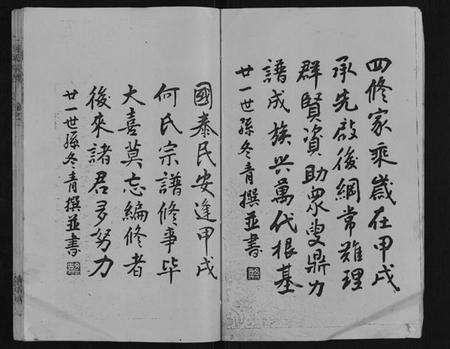 四修家乘歲在甲戌
承先啟後綱常難理
群賢資助眾叟鼎力
譜成族興萬代根基
廿一世孫冬青撰並書
國泰民安逢甲戌
何氏宗譜修事毕
大喜莫忘編修者
後來諸君多努力
廿一世孫冬青撰並書